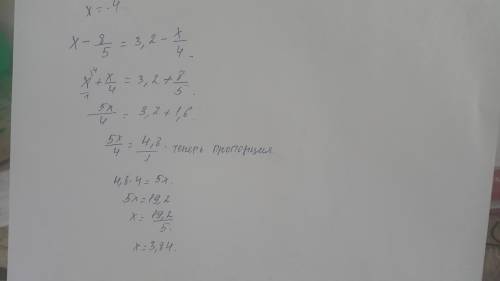 x = -4
x - 8/5 = 3,2 - x/4
x/1 + x/4 = 3,2 + 8/5
5x/4 = 3,2 + 1,6
5x/4 = 4,8/1 . теперь пропорция
4,8·4 = 5x.
5x = 19,2
x = 19,2/5
x = 3,84.